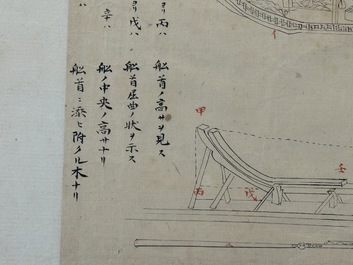 ヨリ丙ハ
舩首ノ高サヲ見ス
ヨリ戊ハ
舩首屈曲ノ状ヲ示ス
辛ハ
舩ノ中央ノ高サナリ
舩首ニ添ヒ附タル木ナリ
甲
丙
戊
壬